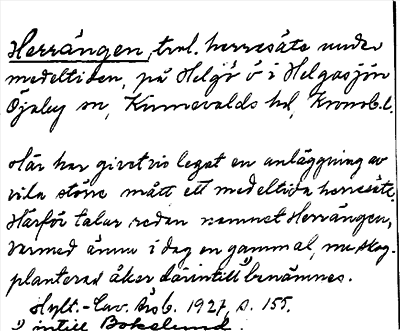 Herrängen, trol. herresäte under
medeltiden, på Helgö ö i Helgasjön
Öjaby sn, Kinnevalds hd, Kronob. l.
Här har givetvis legat en anläggning av
vida större mått ett medeltida herresäte.
Härför talar redan namnet Herrängen,
varmed ännu i dag en gammal, nu skog-
planterad åker därintill benämnes.
Hylt.-Cav. Årsb. 1927, s. 155.
intill Bokelund.